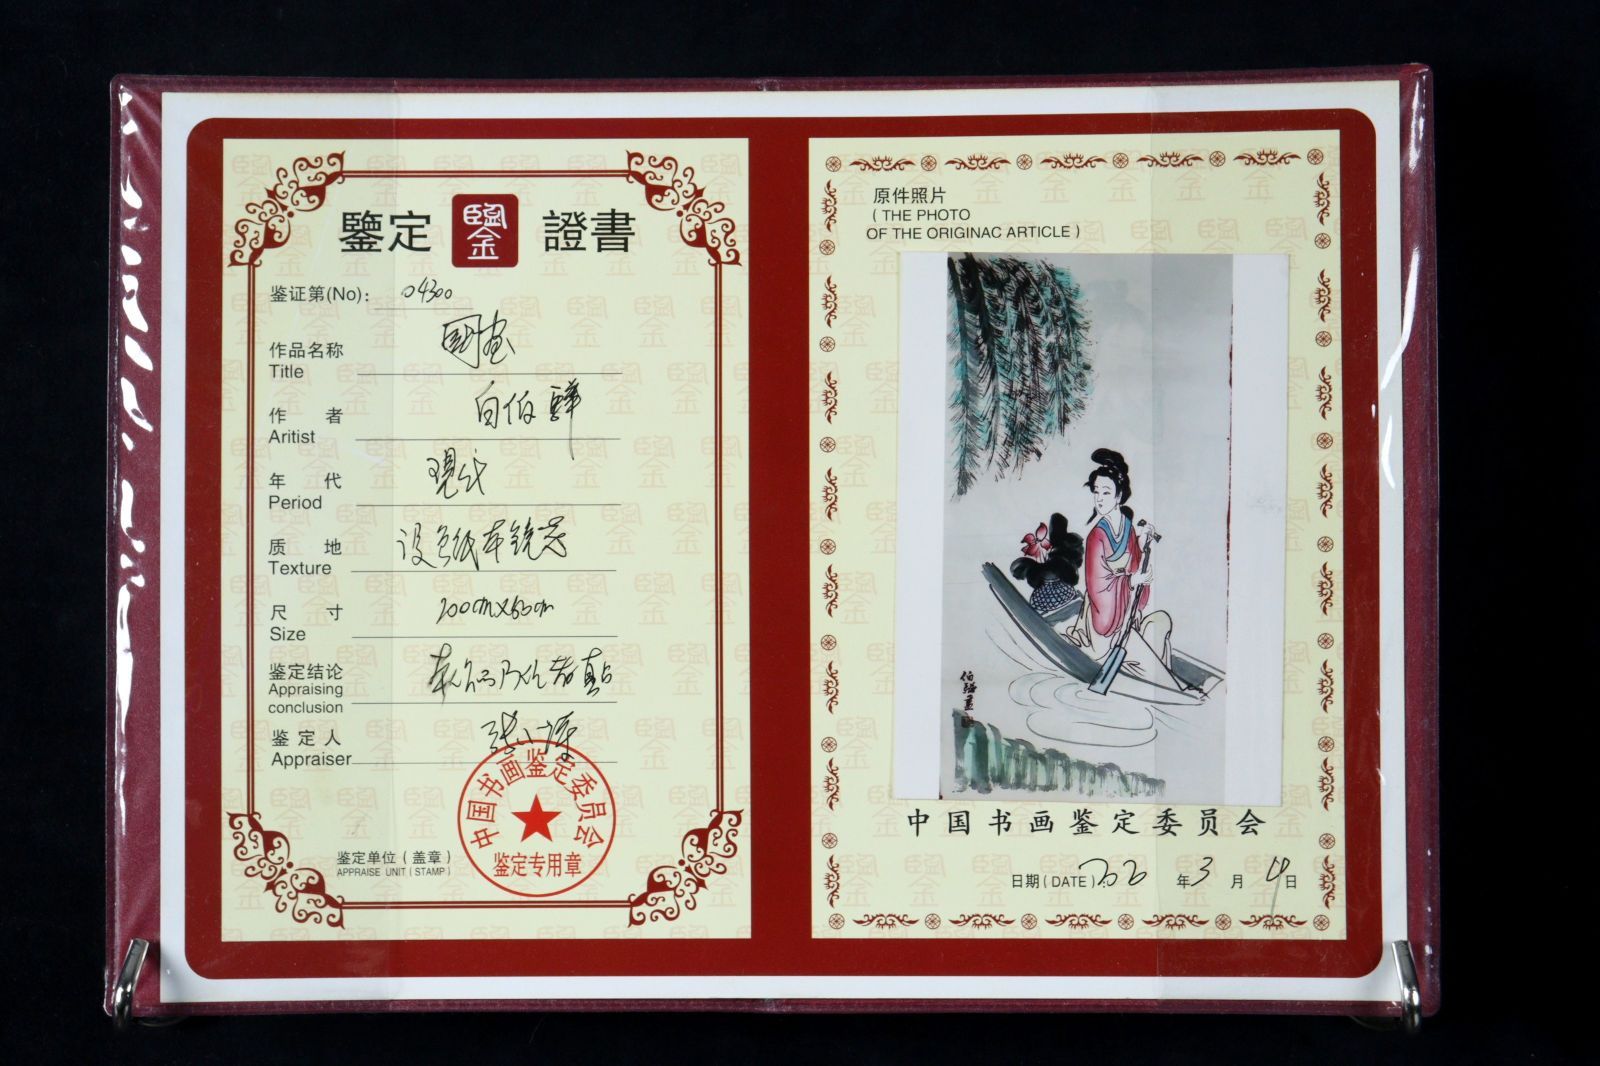 鑒定 鑒 證書
鉴证第(No)： 04300
作品名称 国画
Title
作 者 白伯骅
Aritist
年 代 现代
Period
质 地 设色纸本镜芯
Texture
尺 寸 100cm×50cm
Size
鉴定结论 本作品乃作者真迹
Appraising
conclusion
鉴 定 人
Appraiser
中国书画鉴定委员会
鉴定专用章
鉴定单位（盖章）
APPRAISE UNIT ( STAMP )
原件照片
( THE PHOTO
OF THE ORIGINAC ARTICLE )
伯骅画
中国书画鉴定委员会
日期 ( DATE ) : 2020 年 3 月 4 日